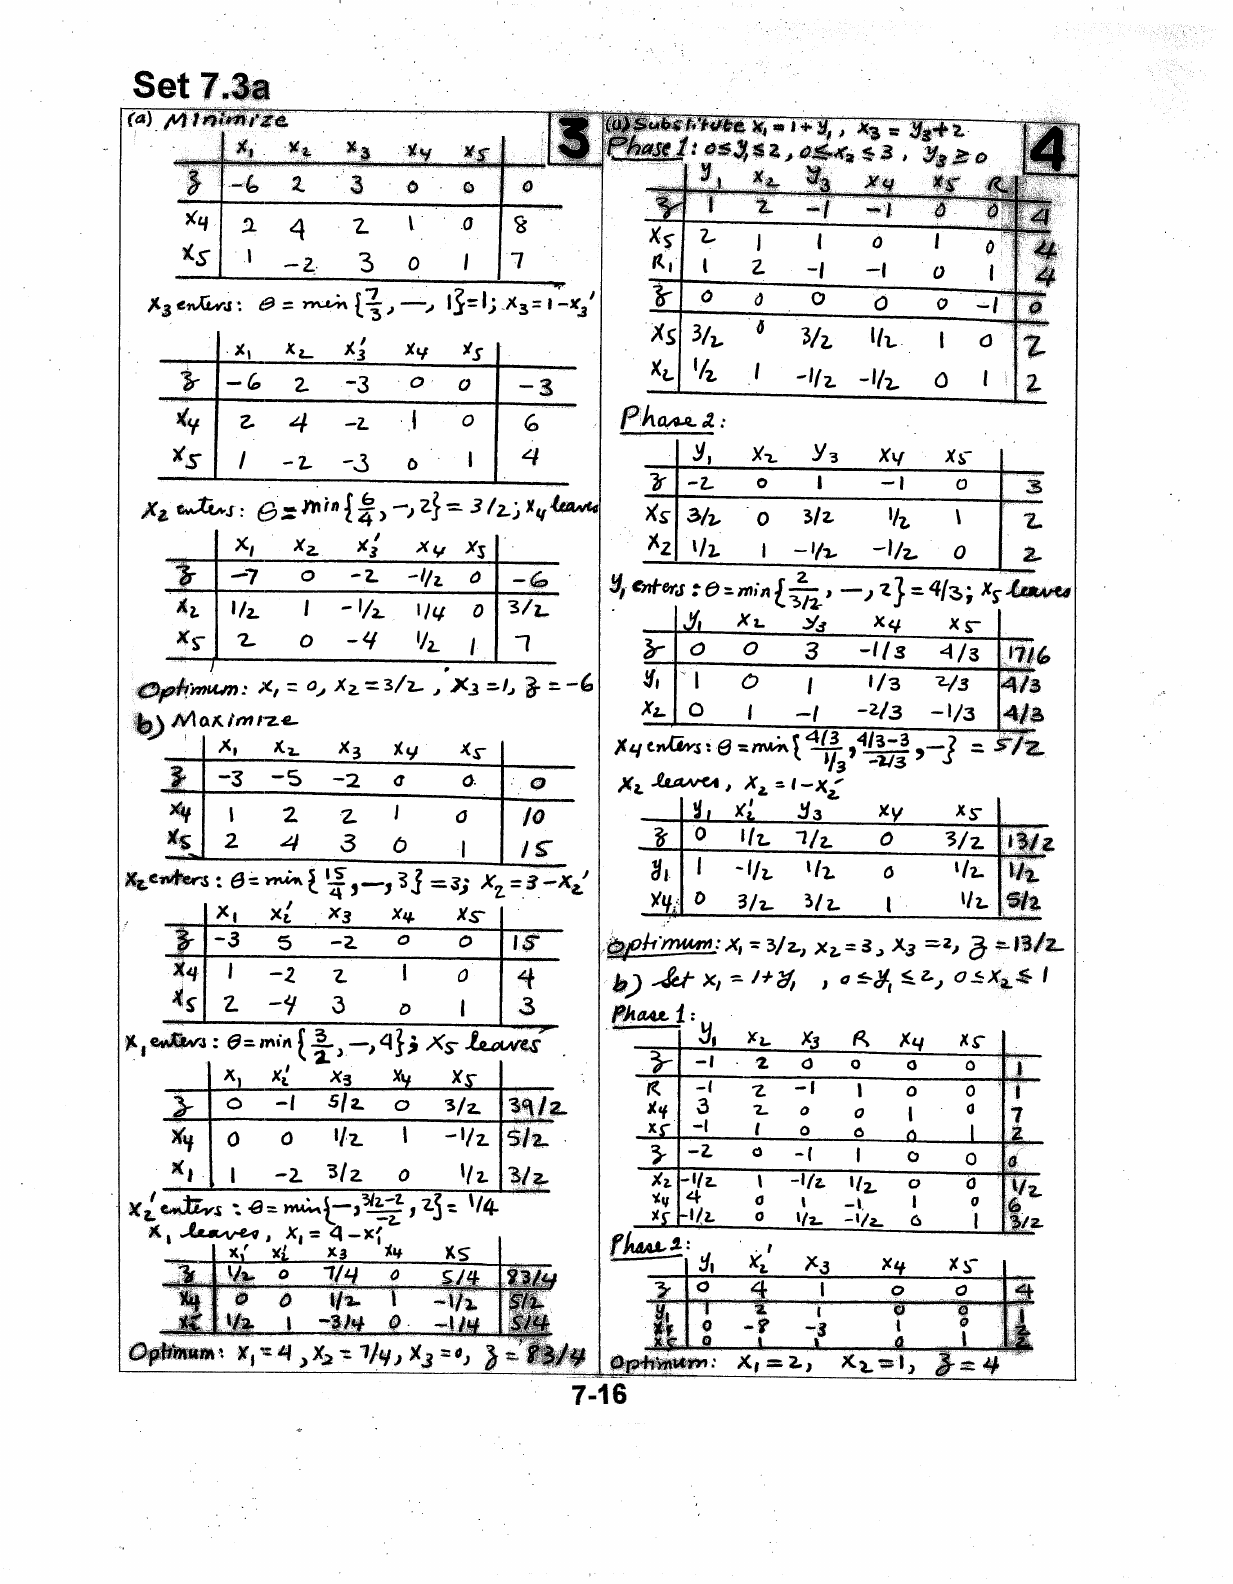 Set 7.3a
(a) Minimize
3
x1 x2 x3 x4 x5
z -6 2 3 0 0 0
x4 2 4 2 1 0 8
x5 1 -2 3 0 1 7
x3 enters: θ = min {7/3, —, 1}=1; x3=1-x3'
x1 x2 x3' x4 x5
z -6 2 -3 0 0 -3
x4 2 4 -2 1 0 6
x5 1 -2 -3 0 1 4
x2 enters: θ = min{6/4, -, 2} = 3/2; x4 leaves
x1 x2 x3' x4 x5
z -7 0 -2 -1/2 0 -6
x2 1/2 1 -1/2 1/4 0 3/2
x5 2 0 -4 1/2 1 7
Optimum: x1 = 0, x2 = 3/2, x3 = 1, z = -6
b) Maximize
x1 x2 x3 x4 x5
z -3 -5 -2 0 0 0
x4 1 2 2 1 0 10
x5 2 4 3 0 1 15
x2 enters: θ = min {15/4, —, 3} = 3; x2 = 3-x2'
x1 x2' x3 x4 x5
z -3 5 -2 0 0 15
x4 1 -2 2 1 0 4
x5 2 -4 3 0 1 3
x1 enters: θ = min {3/2, —, 4}; x5 leaves
x1 x2' x3 x4 x5
z 0 -1 5/2 0 3/2 39/2
x4 0 0 1/2 1 -1/2 5/2
x1 1 -2 3/2 0 1/2 3/2
x2' enters: θ = min{—, 3/2-2/-2, 2} = 1/4
x1 leaves, x1 = 4-x1'
x1' x2' x3 x4 x5
z 1/2 0 7/4 0 5/4 83/4
x4 0 0 1/2 1 -1/2 5/2
x2' 1/2 1 -3/4 0 -1/4 5/4
Optimum: x1 = 4, x2 = 7/4, x3 = 0, z = 83/4
(a) Substitute x1 = 1+y1, x3 = y3+2
4
Phase 1: 0≤y1≤2, 0≤x2≤3, y3≥0
y1 x2 y3 x4 x5 R
z 1 2 -1 -1 0 0 4
x5 2 1 1 0 1 0 4
R1 1 2 -1 -1 0 1 4
z 0 0 0 0 0 -1 0
x5 3/2 0 3/2 1/2 1 0 2
x2 1/2 1 -1/2 -1/2 0 1 2
Phase 2:
y1 x2 y3 x4 x5
z -2 0 1 -1 0 3
x5 3/2 0 3/2 1/2 1 2
x2 1/2 1 -1/2 -1/2 0 2
y1 enters: θ = min{2/3/2, —, 2} = 4/3; x5 leaves
y1 x2 y3 x4 x5
z 0 0 3 -1/3 4/3 17/6
y1 1 0 1 1/3 2/3 4/3
x2 0 1 -1 -2/3 -1/3 4/3
x4 enters: θ = min{4/3/1/3, 4/3-3/-2/3, —} = 5/2
x2 leaves, x2 = 1-x2'
y1 x2' y3 x4 x5
z 0 1/2 7/2 0 3/2 13/2
y1 1 -1/2 1/2 0 1/2 1/2
x4 0 3/2 3/2 1 1/2 5/2
optimum: x1 = 3/2, x2 = 3, x3 = 2, z = 13/2
b) Set x1 = 1+y1, 0≤y1≤2, 0≤x2≤1
Phase 1:
y1 x2 x3 R x4 x5
z -1 2 0 0 0 0 1
R -1 2 -1 1 0 0 1
x4 3 2 0 0 1 0 7
x5 -1 1 0 0 0 1 2
z -2 0 -1 1 0 0 0
x2 -1/2 1 -1/2 1/2 0 0 1/2
x4 4 0 1 -1 1 0 6
x5 -1/2 0 1/2 -1/2 0 1 3/2
Phase 2:
y1 x2' x3 x4 x5
z 0 4 1 0 0 4
y1 1 2 1 0 0 1
0 -8 -3 1 0
x5 0 1 1 0 1 2
Optimum: x1 = 2, x2 = 1, z = 4
7-16